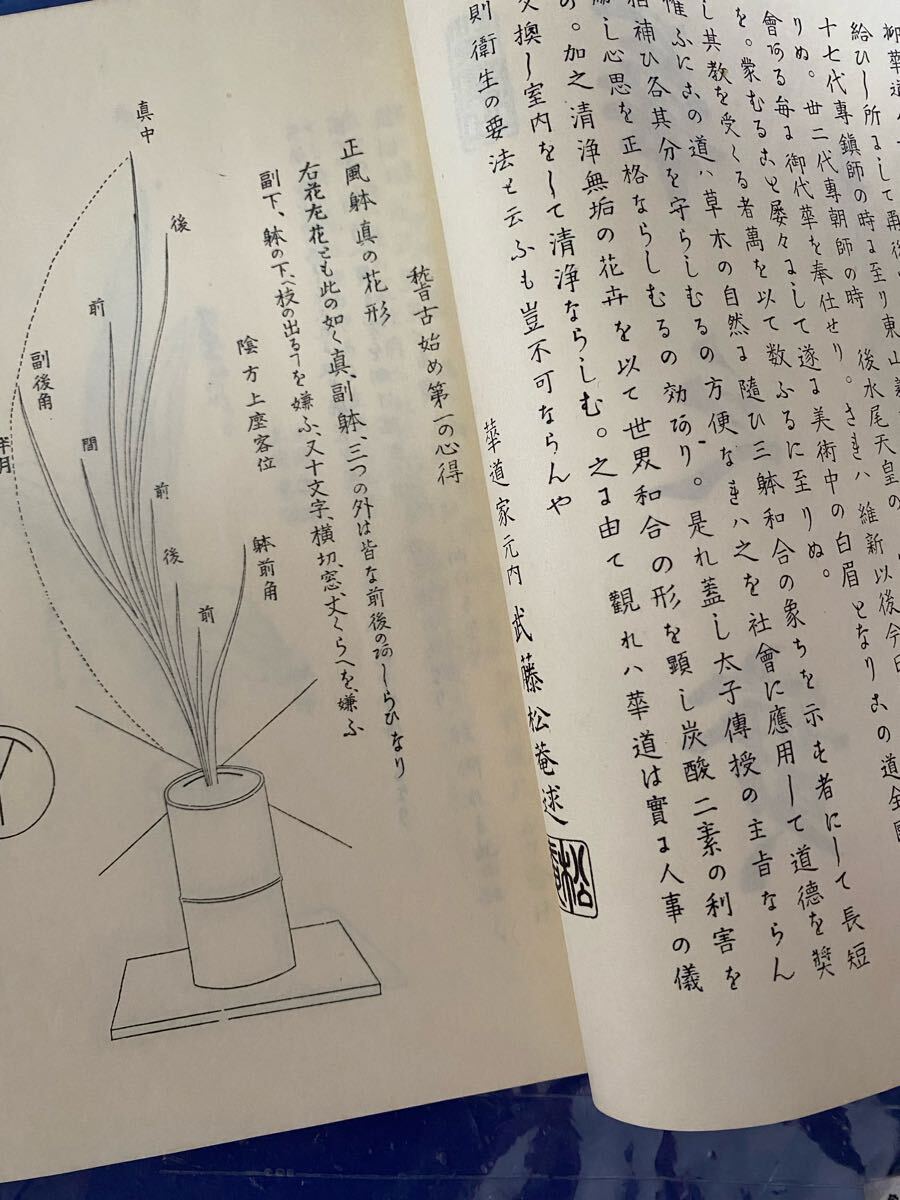 給ひし所にして再後
十七代專鎮師の時に至り東山
りぬ。丗二代專朝師の時、後水尾天皇の
會ある毎に御代華を奉仕せり。さきハ維新以後今日
を。蒙むること屡々にして遂に美術中の白眉となりこの道全國
し其教を受くる者萬を以て数ふるに至りぬ。
惟ふにこの道ハ草木の自然に隨ひ三躰和合の象ちを示す者にして長短
相補ひ各其分を守らしむるの方便なきハ之を社會に應用して道德を奬
勵し心思を正格ならしむるの効あり。是れ蓋し太子傳授の主旨ならん
の。加之清浄無垢の花卉を以て世界和合の形を顕し炭酸二素の利害を
交換し室内をして清浄ならしむ。之に由て觀れハ華道は實に人事の儀
則衛生の要法と云ふも豈不可ならんや
華道家元内 武藤松菴述
稽古始め第一の心得
正風躰真の花形
右花左花とも此の如く真、副、躰、三つの外は皆な前後のあしらひなり
副下、躰の下へ枝の出るヿを嫌ふ、又十文字、横切、窓、丈くらへを嫌ふ
陰方上座客位
真中
後
前
副後角
間
前
後
前
躰前角
半月